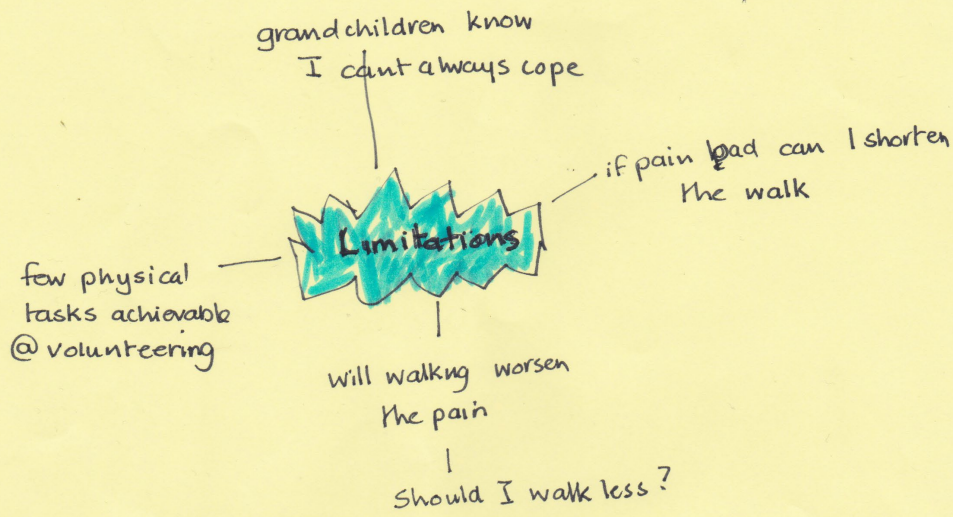 grandchildren know
I cant always cope
if pain bad can I shorten
the walk
Limitations
few physical
tasks achievable
@ volunteering
will walkng worsen
the pain
Should I walk less?